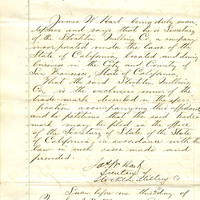 James W. Hart being duly sworn
deposes and says that he is Secretary
of the Stockton Milling Co. a company
incorporated under the laws of the
State of California, located and doing
business in the City and County of
San Francisco, State of California.
That the said Stockton Milling
Co., is the exclusive owner of the
trade-mark described in the speci-
fication accompanying this affidavit
and he petitions that the said trade
mark may be filed in the office
of the Secretary of State of the State
of California, in accordance with the
law in such cases made and
provided.
Jas. W. Hart
Secretary
Stockton Milling Co
before me this day of